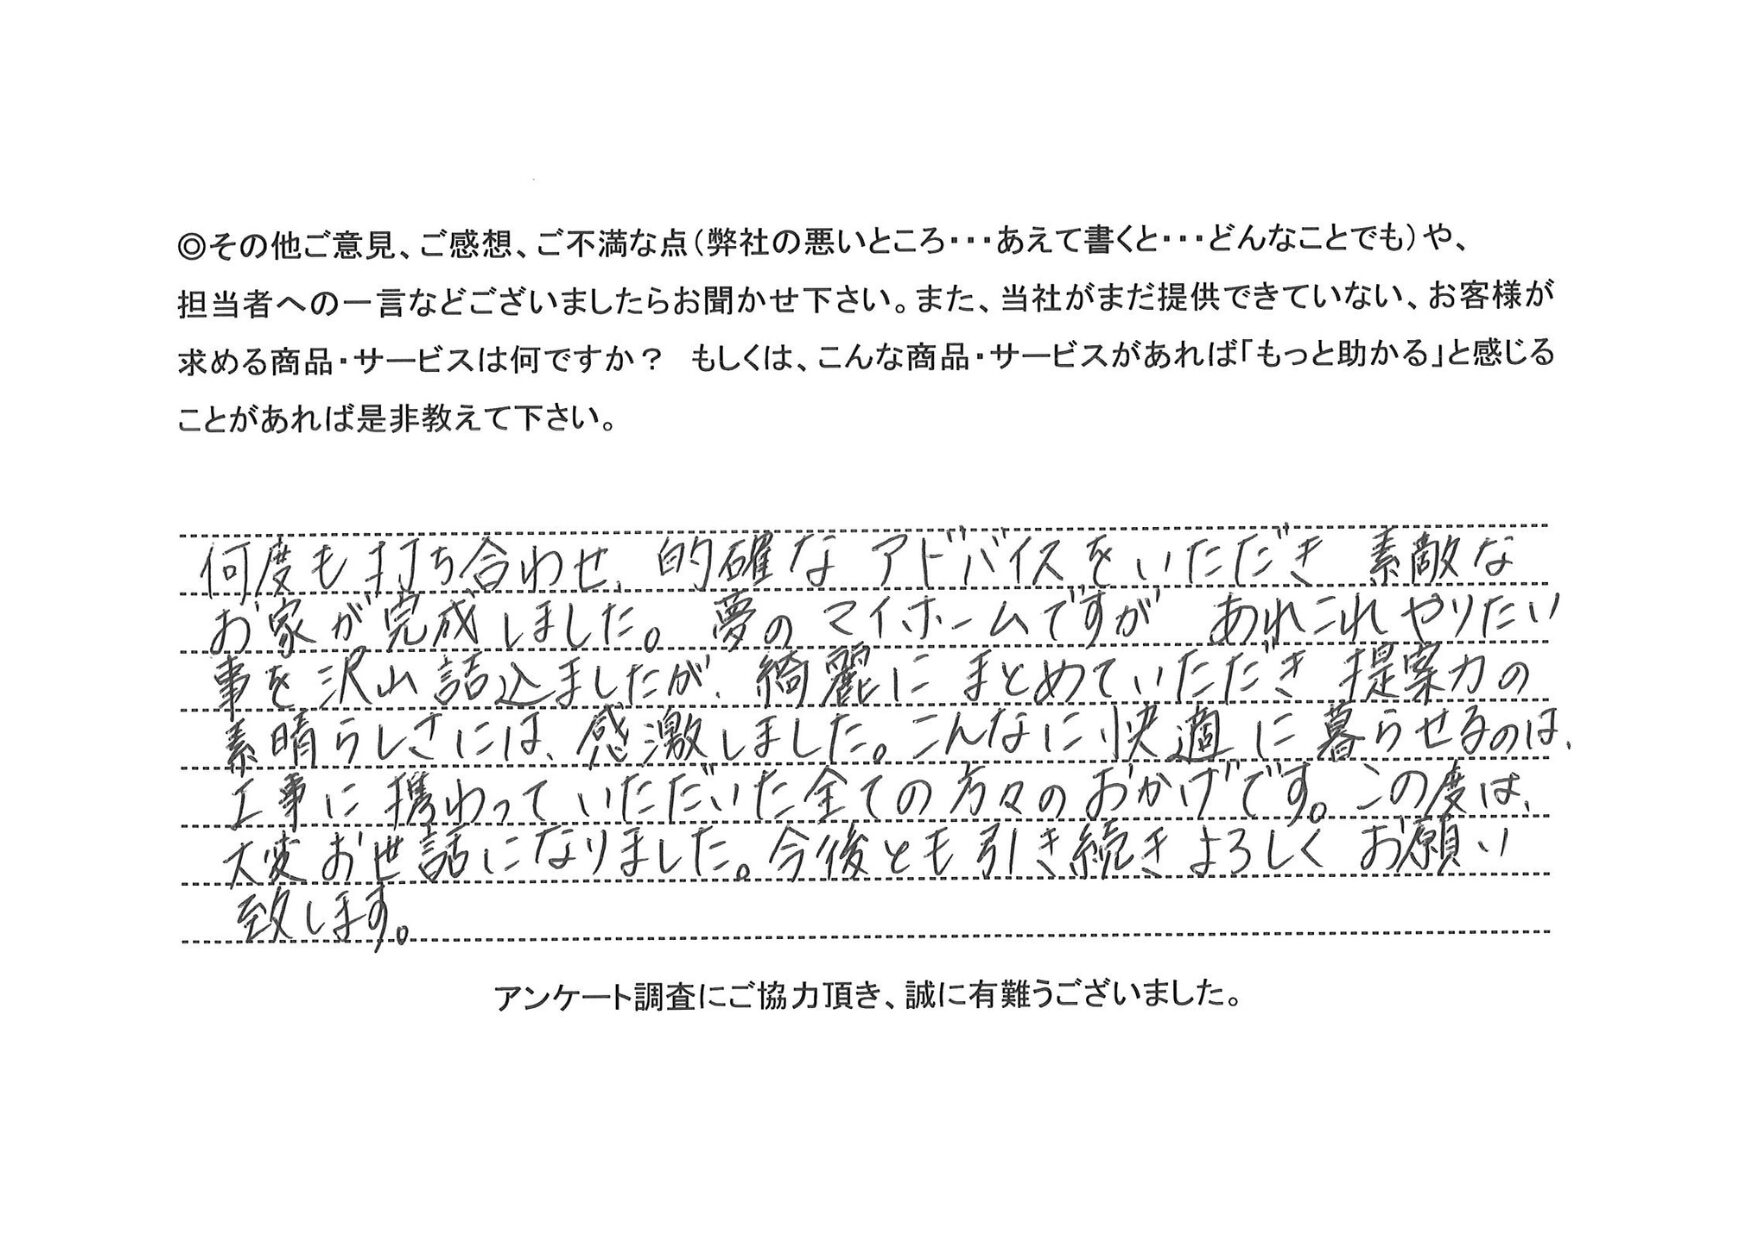 ◎その他ご意見、ご感想、ご不満な点（弊社の悪いところ･･･あえて書くと･･･どんなことでも）や、
担当者への一言などございましたらお聞かせ下さい。また、当社がまだ提供できていない、お客様が
求める商品・サービスは何ですか？　もしくは、こんな商品・サービスがあれば「もっと助かる」と感じる
ことがあれば是非教えて下さい。
何度も打ち合わせ、的確な アドバイスをいただき 素敵な
お家が完成しました。夢の マイホームですが あれこれ やりたい
事を 沢山 詰込ましたが、綺麗に まとめていただき 提案力の
素晴らしさには、感激しました。こんなに快適に暮らせるのは、
工事に携わっていただいた全ての方々のおかげです。この度は、
大変お世話になりました。今後とも引き続きよろしく お願い
致します。
アンケート調査にご協力頂き、誠に有難うございました。